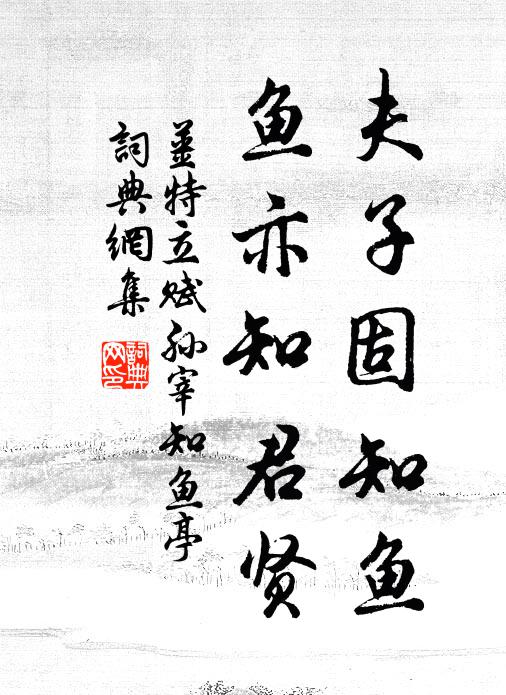 夫子固知鱼
鱼亦知君贤
姜特立赋孙宰知鱼亭
詞典網集
詞典网印